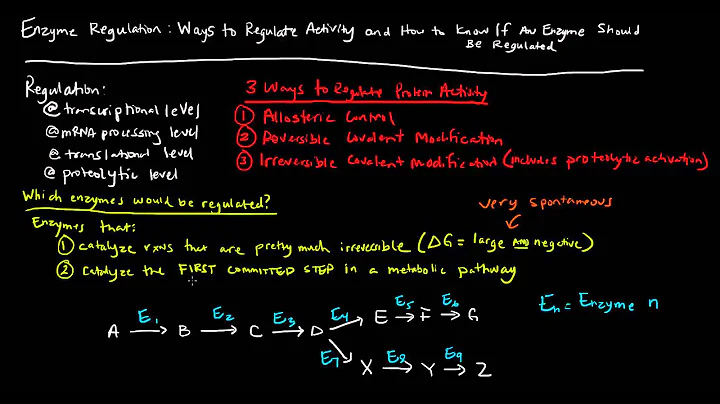 Enzyme Regulation: Ways to Regulate Activity and How to Know If An Enzyme Should
Be Regulated
Regulation:
@ transcriptional level
@ mRNA processing level
@ translational level
@ proteolytic level
3 Ways to Regulate Protein Activity
① Allosteric Control
② Reversible Covalent Modification
③ Irreversible Covalent Modification (includes proteolytic activation)
Which enzymes would be regulated?
very spontaneous
Enzymes that:
① catalyze rxns that are pretty much irreversible (ΔG = large AND negative)
② catalyze the FIRST COMMITTED STEP in a metabolic pathway
E₁ E₂ E₃ E₄ E₅ E₆
A → B → C → D → E → F → G
E₇ E₈ E₉
X → Y → Z
Eₙ = Enzyme n